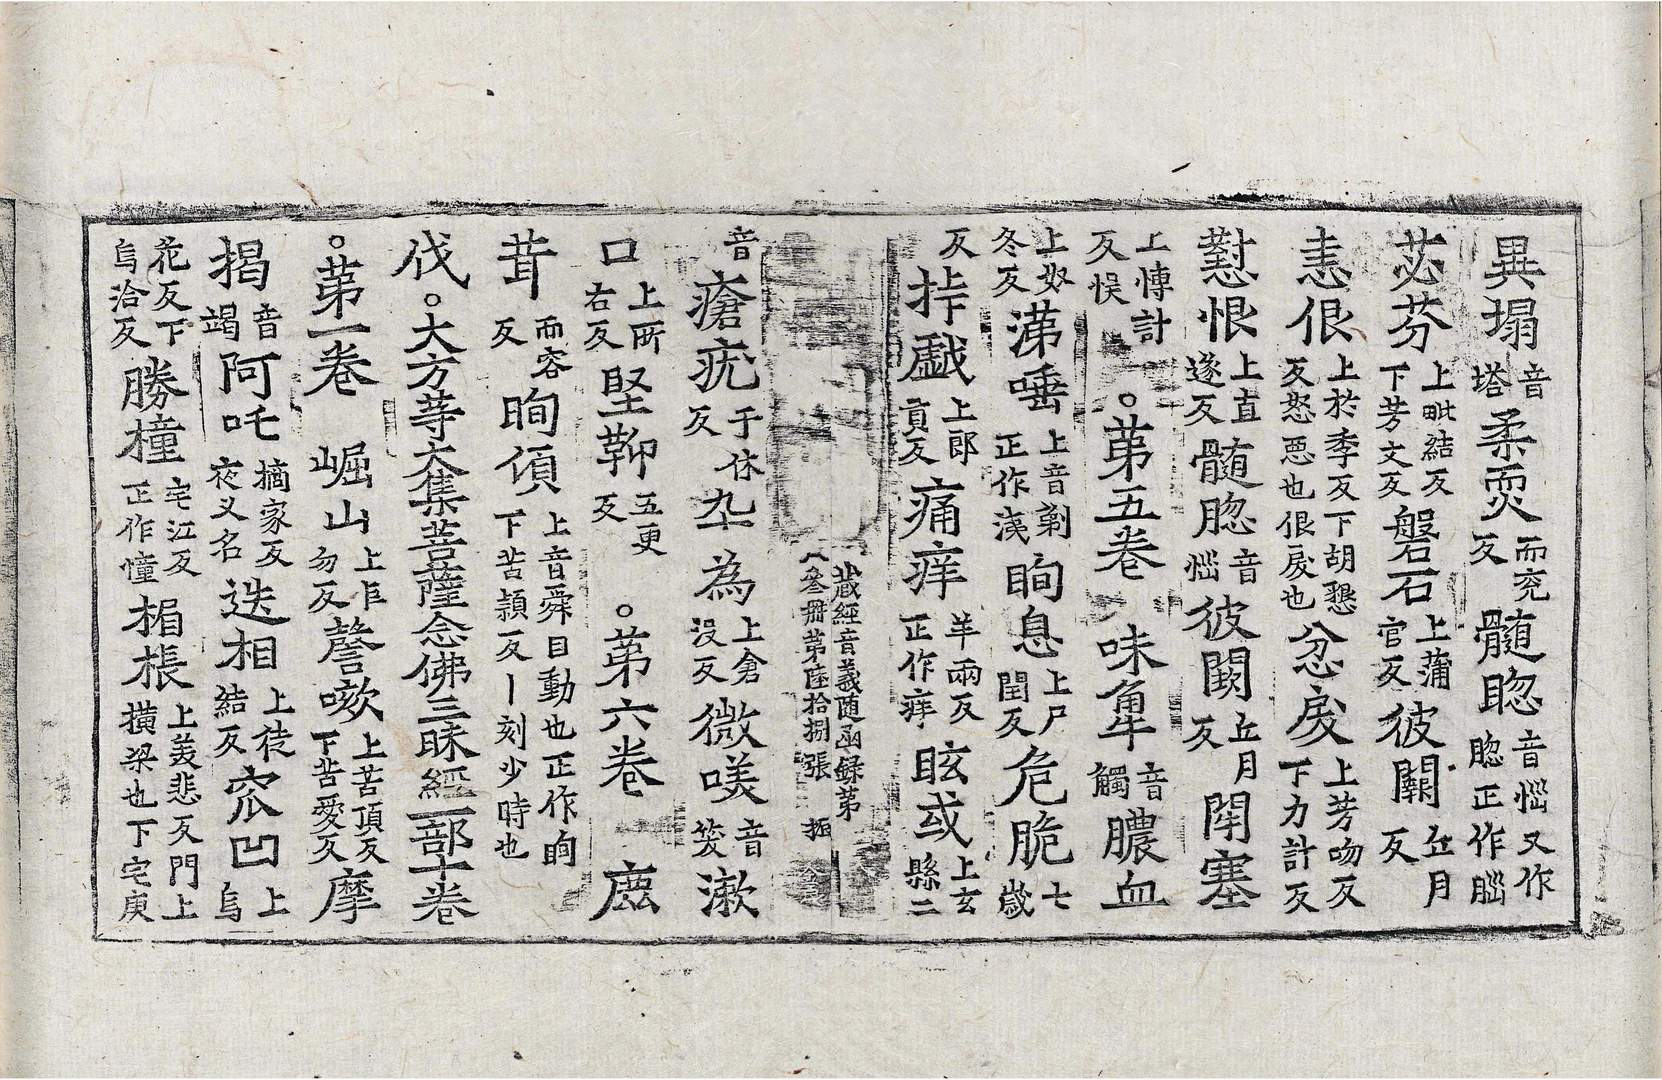 異塌音塔柔耎而兖反髄𦛁音惱又作𦛁正作腦
苾芬上毗結反下芳文反磐石上蒲官反彼闕丘月反
恚佷上於季反下胡懇反怒悪也佷戾也忿戾上芳吻反下力計反
懟恨上直遂反髄𦛁音惱彼闕丘月反闡塞
上慱計反悮 ○第五卷 味𧢲音觸膿血
上奴冬反涕唾上音剃正作洟眴息上尸閏反危脆七歳反
㧗戱上郎貢反痛痒羊兩反正作痒眩或上玄縣二反
藏經音義随函録第叁冊第陸拾捌張
音瘡疣于休反九十為上倉没反微𠹌音笑漱
口上所右反堅鞕五更反 ○第六卷 麁
茸而容反眴傾上音舜目動也正作眴下苦頴反丨刻少時也
伐○大方等大集菩薩念佛三昧經一部十卷
○第一卷 崛山上巨勿反謦嗽上苦頂反下苦愛反摩
揭音竭阿吒摘家反夜叉名迭相上徒結反窊凹上烏
花反下烏洽反勝橦宅江反正作幢楣棖上美悲反門上橫梁也下宅庚